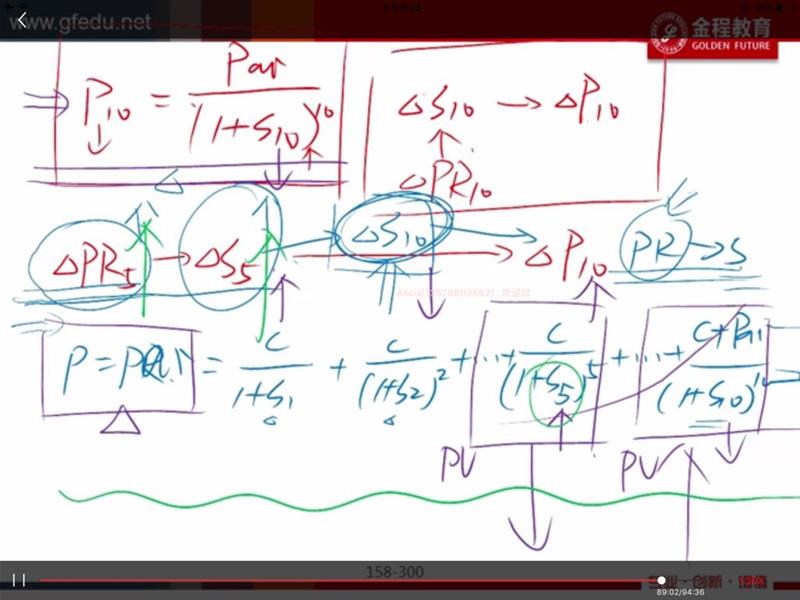 下午6:23
www.gfedu.net
金程教育
GOLDEN FUTURE
⇒ P10 = Par / (1+S10)^10
ΔS10 → ΔP10
ΔPR10
ΔPR5 → ΔS5 → ΔS10 → ΔP10
PR → S
P = PAR = C/(1+S1) + C/(1+S2)^2 + ... + C/(1+S5)^5 + ... + C+Par/(1+S10)^10
PV PV
158-300
专业·创新·增值
89:02/94:36